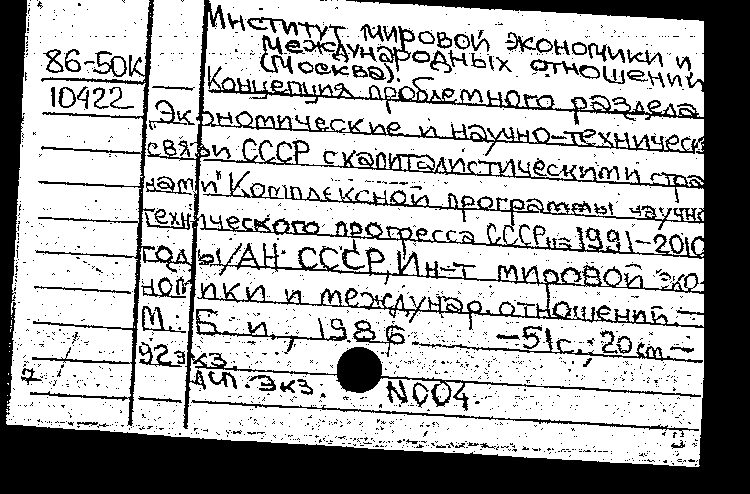 Институт мировой экономики и
международных отношений
(Москва).
86-50К
10422
Концепция проблемного раздела
"Экономические и научно-техническ
связи СССР с капиталистическими стра
нами" Комплексной программы научно
технического прогресса СССР на 1991-2010
годы/АН СССР, Ин-т мировой эко-
номики и междунар. отношений.—
М.: Б. и., 1986 —51с.; 20 см.—
92 экз.
ДСП. экз. N004.